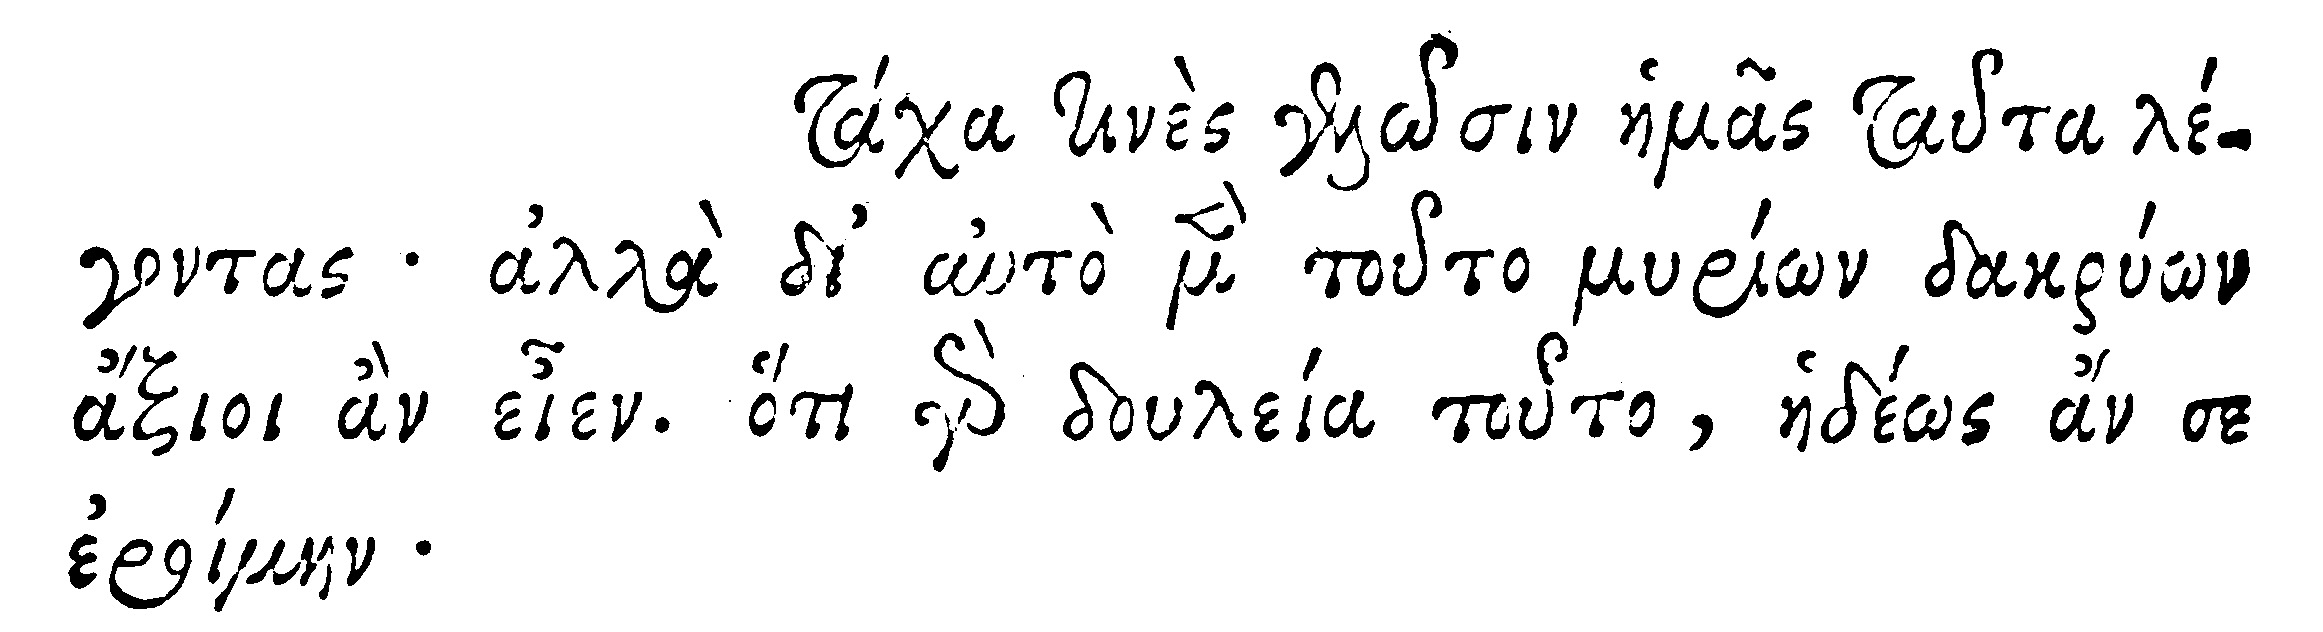 τάχα τινὲς γελῶσιν ἡμᾶς ταῦτα λέ-
γοντας · ἀλλὰ δι' αὐτὸ μὲν τοῦτο μυρίων δακρύων
ἄξιοι ἂν εἶεν. ὅτι γὰρ δουλεία τοῦτο, ἡδέως ἄν σε
ἐροίμην ·